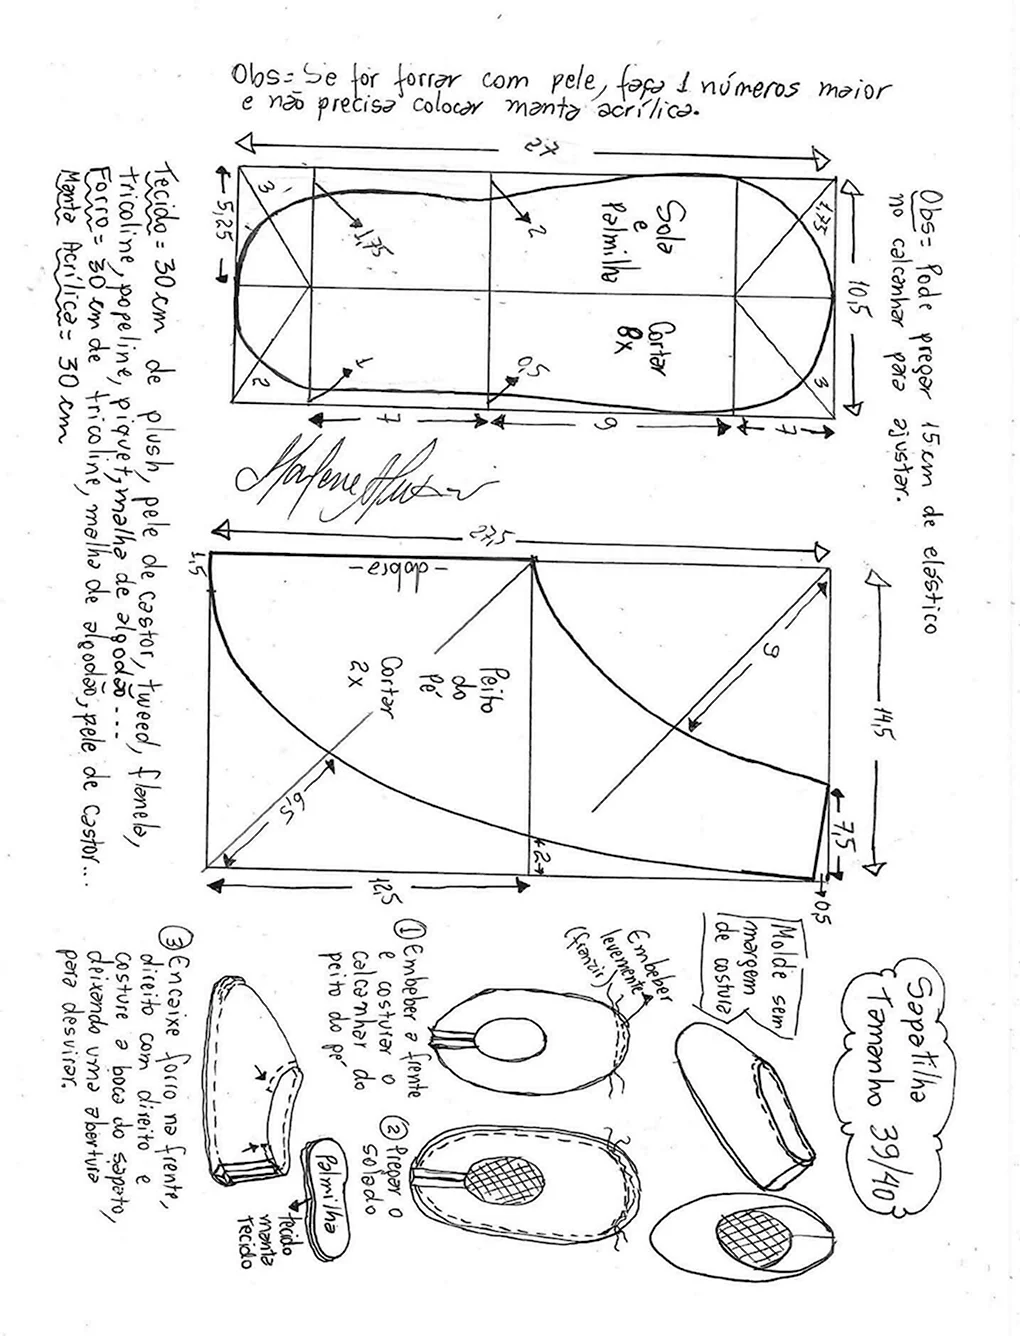 Obs= Se for forrar com pele, faça 1 números maior
e não precisa colocar manta acrílica.
Sapatilha
Tamanho 39/40
Molde sem
margem
de costura
Obs= Pode pregar 15 cm de elástico
no calcanhar para ajustar.
27
10,5
5,25
3
1,75
2
1,75
Sola
e
Palmilha
Cortar
8x
2
1
0,5
3
7
9
7
27,5
14,5
1,5
-dobra-
9
Peito
do
Pé
Cortar
2x
6,5
2
7,5
0,5
12,5
Tecido= 30 cm de plush, pele de castor, tweed, flanela,
tricoline, popeline, piquet, malha de algodão...
Forro= 30 cm de tricoline, malha de algodão, pele de castor...
Manta Acrílica= 30 cm
Embeber
levemente
(franzir)
1 Embeber a frente
e costurar o
calcanhar do
peito do pé
2 Pregar o
solado
3 Encaixe forro na frente,
direito com direito e
costure a boca do sapato,
deixando uma abertura
para desvirar.
Palmilha
tecido
manta
tecido